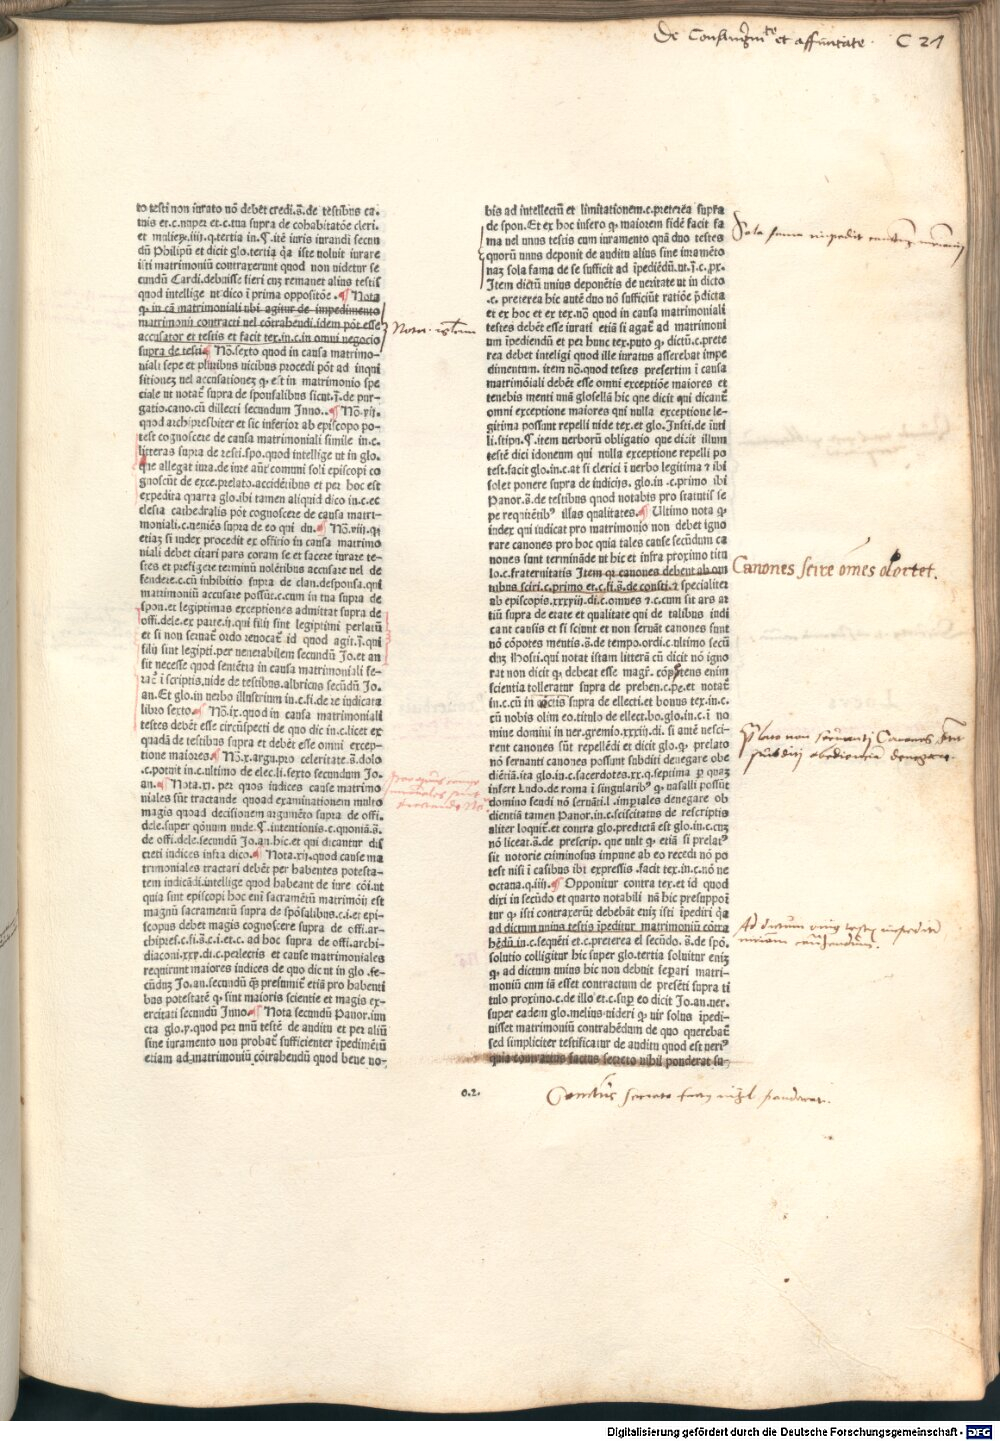 De Consanguinite et affinitate. C 21
to testi non iurato nō debēt credi.s̄.de testibus ca.
tuis et.c.nuper et.c.tua supra de cohabitatōe cleri.
et mulieꝝ.iiii.q.tertia in.¶.itē iuris iurandi secun
dū Philipū et dicit glo.tertia q̄a iste noluit iurare
isti matrimoniū contraxerunt quod non uidetur se
cundū Cardi.debuisse fieri cuꝫ remanet alius testis
quod intellige ut dico ī prima oppositōe .¶ Nota
ꝙ in cā matrimoniali ubi agitur de impedimento
matrimonii contracti uel cōtrahendi.idem pōt esse
accusator et testis et facit tex.in.c.in omni negocio
supra de testi¶ Nō.sexto quod in causa matrimo-
niali sepe et pluribus uicibus procedi pōt ad inqui
sitioneꝫ uel accusationeꝫ ꝙ est in matrimonio spe
ciale ut notat᷑ supra de sponsalibus sicut.ī.de pur-
gatio.cano.cū dillecti secundum Inno..¶ Nō.vii.
quod archipresbiter et sic inferior ab episcopo po-
test cognoscere de causa matrimoniali simile in.c.
litteras supra de testi.spo.quod intellige ut in glo.
que allegat iura.de iure aūt comuni soli episcopi co
gnoscūt de exce.prelato.accidētibus et per hoc est
expedita quarta glo.ibi tamen aliquid dico in.c.ec
clesia cathedralis pōt cognoscere de causa matri-
moniali.c.ueniēs supra de eo qui du.¶ Nō.viii.ꝙ
etiaꝫ si iudex procedit ex offitio in causa matrimo
niali debet citari pars coram se et facere iurare te-
stes et prefigere terminū uolētibus accusare uel de
fendere.c.cū inhibitio supra de clan.desponsa.qui
matrimoniū accusare possūt.c.cum in tua supra de
spon.et legitimas exceptiones admittat supra de
offi.dele.ex parte.ii.qui filii sunt legiptimi perlatū
et si non seruat᷑ ordo reuocat᷑ id quod agit.ī.qui
filii sunt legipti.per uenerabilem secundū Jo.et an
sit necesse quod sentētia in causa matrimoniali fe-
rat᷑ ī scriptis.uide de testibus.albricus secūdū Jo.
an.Et glo.in uerbo illustrium in.c.fi.de re iudicata
libro sexto.¶ Nō.ix.quod in causa matrimoniali
testes debēt esse circūspecti de quo dic in.c.licet ex
quadā de testibus supra et debēt esse omni excep-
tione maiores¶ Nō.x.argu.pro celeritate.s̄.dolo
.c.potuit in.c.ultimo de elec.li.sexto secundum Jo.
an.¶ Nota.xi. per quos iudices cause matrimo
niales sūt tractande quoad examinationem multo
magis quoad decisionem argumēto supra de offi.
dele.super qōnum unde.¶.intentionis.c.quoniā.s̄.
de offi.dele.secundū Jo.an.hic.et qui dicantur dis
creti iudices infra dico.¶ Nota.xij.quod cause ma
trimoniales tractari debēt per habentes potesta-
tem iudicādi.intellige quod habeant de iure cōi.ut
quia sunt episcopi hoc eni sacramētū matrimoii est
magnū sacramentū supra de spōsalibus.c.i.et epi-
scopus debet magis cognoscere supra de offi.ar-
chipres.c.fi.s̄.c.i.et.c. ad hoc supra de offi.archi-
diaconi.xxv.di.c.perlectis et cause matrimoniales
requirunt maiores iudices de quo dic ut in glo .se-
cūduꝫ Jo.an.secundū q̄s presumit᷑ etiā pro habenti
bus potestatē ꝙ sint maioris scientie et magis ex-
ercitati secundū Inno.¶ Nota secundū Panor.iun
cta glo.v.quod per unū testē de auditu et per aliū
sine iuramento non probat᷑ sufficienter ipedimētū
etiam ad matrimoniū cōtrahendū quod bene no-
bis ad intellectū et limitationem.c.preterea supra
de spon.Et ex hoc infero ꝙ maiorem fidē facit fa
ma uel unus testis cum iuramento quā duo testes
quorū unus deponit de auditu alius sine iuramēto
naꝫ sola fama de se sufficit ad īpediēdū.ut.ī.c.pꝛ.
Item dictū unius deponētis de ueritate ut in dicto
.c. preterea hic autē duo nō sufficiūt ratiōe p̄dicta
et ex hoc et ex tex.nō quod in causa matrimoniali
testes debēt esse iurati etiā si agat᷑ ad matrimoni
um īpediendū et per hunc tex.puto ꝙ dictū.c.prete
rea debet inteligi quod ille iuratus asserebat impe
dimentum. item nō.quod testes presertim ī causa
matrimōiali debēt esse omni exceptiōe maiores et
tenebis menti unā glosellā hic que dicit qui dicant᷑
omni exceptione maiores qui nulla exceptione le-
gitima possunt repelli uide tex.et glo.Insti.de inuti
li.stipu.¶.item uerborū obligatio que dicit illum
testē dici idoneum qui nulla exceptione repelli po
test.facit glo.in.c.at si clerici ī uerbo legitima ⁊ ibi
solet ponere supra de iudiciis. glo.in .c.primo ibi
Panor.s̄.de testibus quod notabis pro statutis se
pe requirētibꝰ illas qualitates.¶ Ultimo nota ꝙ
iudex qui iudicat pro matrimonio non debet igno
rare canones pro hoc quia tales cause secūdum ca
nones sunt terminande ut hic et infra proximo titu
lo.c.fraternitatis Item ꝙ canones debent ab om
nibus sciri.c.primo et.c.fi.s̄.de consti.⁊ specialiter
ab episcopis.xxxviii.di.c.omnes ⁊.c.cum sit ars ar
tiū supra de etate et qualitate qui de talibus iudi
cant causis et si sciunt et non seruāt canones sunt
nō cōpotes mentis.s̄.de tempo.ordi.c.ultimo secū
duꝫ Hosti.qui notat istam litterā cū dicit nō igno
rat non dicit ꝙ debeat esse magr̄. cōpetens enim
scientia tolleratur supra de preben.c.pe.et notat᷑
in.c.cū in uīctis supra de ellecti.et bonus tex.in.c.
cū nobis olim eo.titulo de ellect.bo.glo.in.c.i no
mine domini in uer.gremio.xxxiij.di. si autē nesci-
rent canones sūt repellēdi et dicit glo.ꝙ prelato
nō seruanti canones possunt subditi denegare obe
diētiā.ita glo.in.c.sacerdotes.xx.q.septima pꝛ quaꝫ
infert Ludo.de roma ī singularibꝰ ꝙ uasalli possūt
domino feudi nō seruāti.l .imperiales denegare ob
dientiā tamen Panor.in.c.sciscitatus de rescriptis
aliter loquit᷑.et contra glo.predictā est glo.in.c.cuꝫ
nō liceat.s̄.de prescrip. que uult ꝙ etiā si prelatꝰ
sit notorie criminosus impune ab eo recedi nō po
test nisi ī casibus ibi expressis .facit tex.in.c.nō ne
octaua.q.iiij.¶ Opponitur contra tex.et id quod
dixi in secūdo et quarto notabili nā hic presuppoi
tur ꝙ isti contraxerūt debebāt eniꝫ isti īpediri q̄a
ad dictum unius testis īpeditur matrimoniū cōtra
hēdū in.c.sequēti et.c.preterea el secūdo. s̄.de spō.
solutio colligitur hic super glo.tertia soluitur eniꝫ
ꝙ ad dictum unius hic non debuit separi matri-
moniū cum iā esset contractum de presēti supra ti
tulo proximo.c.de illo et.c.sup eo dicit Jo.an.uer.
super eadem glo.melius uideri ꝙ uir solus īpedi-
uisset matrimoniū contrahēdum de quo querebat᷑
sed simpliciter testificatur de auditu quod est uerꝰ
quia contractus factus secreto nihil ponderat su-
o.2.
Sola fama impedit
Canones scire omēs oportet.
Prelato non seruanti Canones
subditi obedientiam denegare.
Contractus secreto factus nihil ponderat.
Digitalisierung gefördert durch die Deutsche Forschungsgemeinschaft - DFG